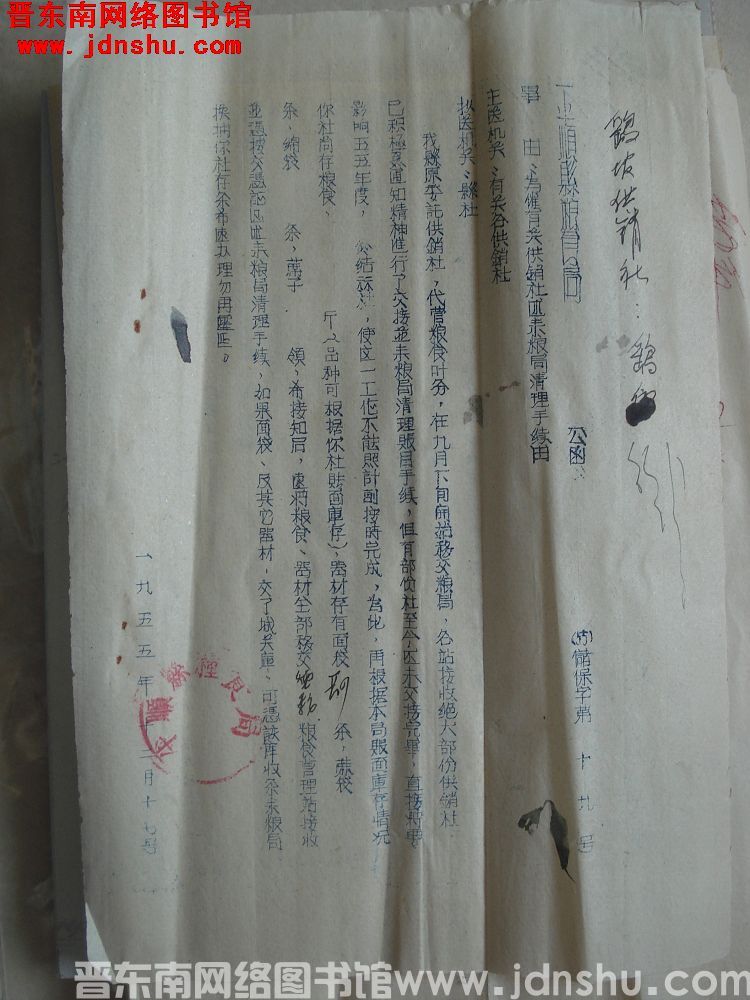 晋东南网络图书馆
www.jdnshu.com
供销社
平顺县粮食局
公函
(55)储保字第十九号
事由:为催有关供销社速来粮局清理手续由
主送机关:有关各供销社
抄送机关:县社
我县原委託供销社,代管粮食部分,在九月下旬开始移交粮局,各站接收绝大部份供销社
已积极贯通知精神进行了交接并来粮局清理账目手续,但有部份社至今还未交接完毕,直接将要
影响五五年度,使这一工作不能照计划按时完成,为此,再根据本局账面库存情况
你社尚存粮食、 斤(品种可根据你社账面库存)、器材存有面袋 条,麻袋
条,绵袋 条,蓆子 领,希接知后,速将粮食、器材全部移交 粮食管理站接收
并凭接交凭证速来粮局清理手续,如果面袋、及其它器材,交了城关库、可凭该库收条来粮局
换抽你社存条希速办理勿再延。
一九五五年十二月十七号
晋东南网络图书馆 www.jdnshu.com